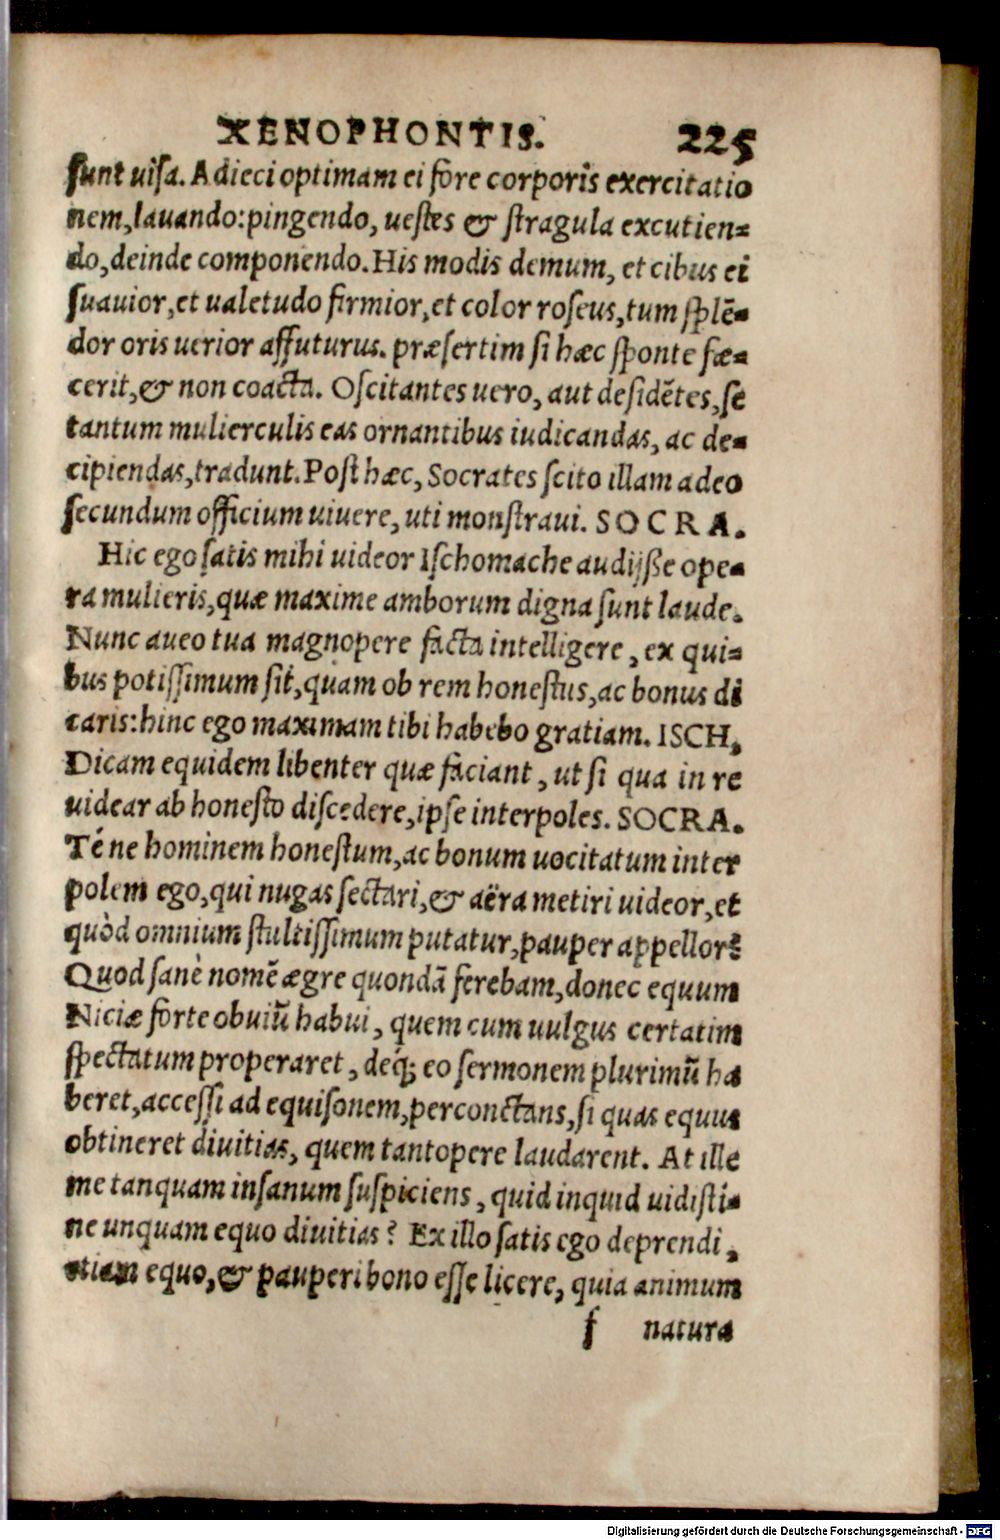 XENOPHONTIS. 225
sunt uisa. Adieci optimam ei fore corporis exercitatio
nem, lauando: pingendo, uestes & stragula excutien=
do, deinde componendo. His modis demum, et cibus ei
suauior, et ualetudo firmior, et color roseus, tum splē=
dor oris uerior affuturus. præsertim si hæc sponte fæ=
cerit, & non coacta. Oscitantes uero, aut desidētes, se
tantum mulierculis eas ornantibus iudicandas, ac de=
cipiendas, tradunt. Post hæc, Socrates scito illam adeo
secundum officium uiuere, uti monstraui. SOCRA.
Hic ego satis mihi uideor Ischomache audijße ope=
ra mulieris, quæ maxime amborum digna sunt laude.
Nunc aueo tua magnopere facta intelligere, ex qui=
bus potissimum sit, quam ob rem honestus, ac bonus di
caris: hinc ego maximam tibi habebo gratiam. ISCH.
Dicam equidem libenter quæ faciant, ut si qua in re
uidear ab honesto discedere, ipse interpoles. SOCRA.
Té ne hominem honestum, ac bonum uocitatum inter
polem ego, qui nugas sectari, & aëra metiri uideor, et
quòd omnium stultissimum putatur, pauper appellor?
Quod sanè nomē ægre quondā ferebam, donec equum
Niciæ forte obuiū habui, quem cum uulgus certatim
spectatum properaret, deq́; eo sermonem plurimū ha
beret, accessi ad equisonem, perconctans, si quas equus
obtineret diuitias, quem tantopere laudarent. At ille
me tanquam insanum suspiciens, quid inquid uidisti=
ne unquam equo diuitias? Ex illo satis ego deprendi,
etiam equo, & pauperi bono esse licere, quia animum
f natura
Digitalisierung gefördert durch die Deutsche Forschungsgemeinschaft - DFG